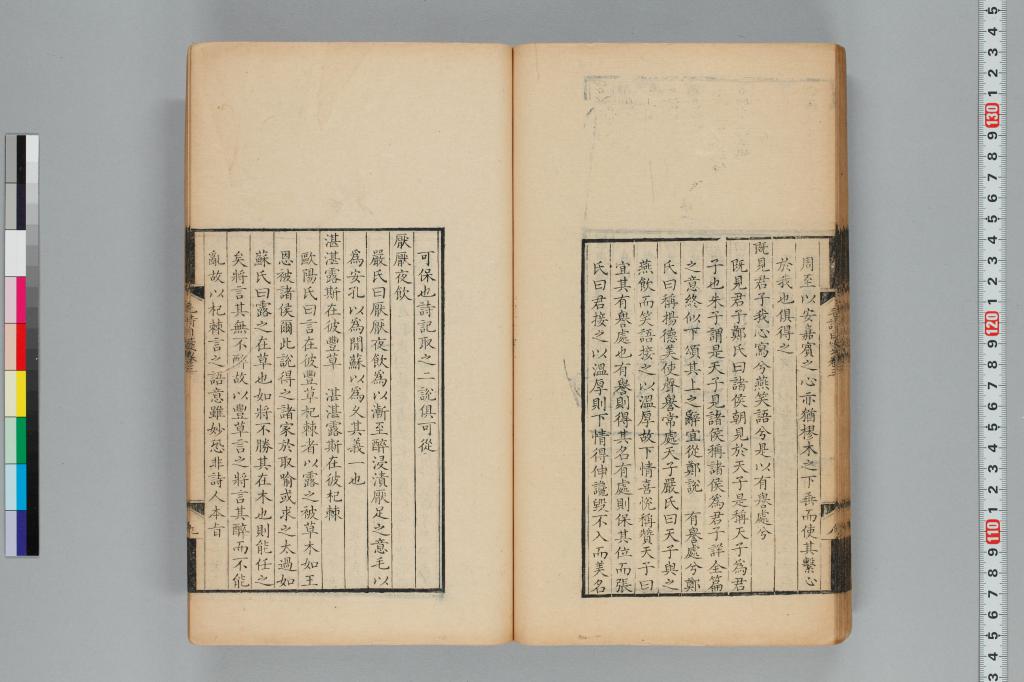 周至以安嘉賓之心亦猶樛木之下垂而使其繫心
於我也俱得之
既見君子我心寫兮燕笑語兮是以有譽處兮
既見君子鄭氏曰諸侯朝見於天子是稱天子為君
子也朱子謂是天子見諸侯稱諸侯為君子詳全篇
之意終似下頌其上之辭宜從鄭說 有譽處兮鄭
氏曰稱揚德美使聲譽常處天子嚴氏曰天子與之
燕飲而笑語接之以溫厚故下情喜悅稱贊天子曰
宜其有譽處也有譽則得其名有處則保其位而張
氏曰君接之以溫厚則下情得伸讒毀不入而美名
可保也詩記取之二說俱可從
厭厭夜飲
嚴氏曰厭厭夜飲為以漸至醉浸漬厭足之意毛以
為安孔以為閒蘇以為久其義一也
湛湛露斯在彼豐草 湛湛露斯在彼杞棘
歐陽氏曰言在彼豐草杞棘者以露之被草木如王
恩被諸侯爾此說得之諸家於取喻或求之太過如
蘇氏曰露之在草也如將不勝其在木也則能任之
矣將言其無不醉故以豐草言之將言其醉而不能
亂故以杞棘言之語意雖妙恐非詩人本旨
九